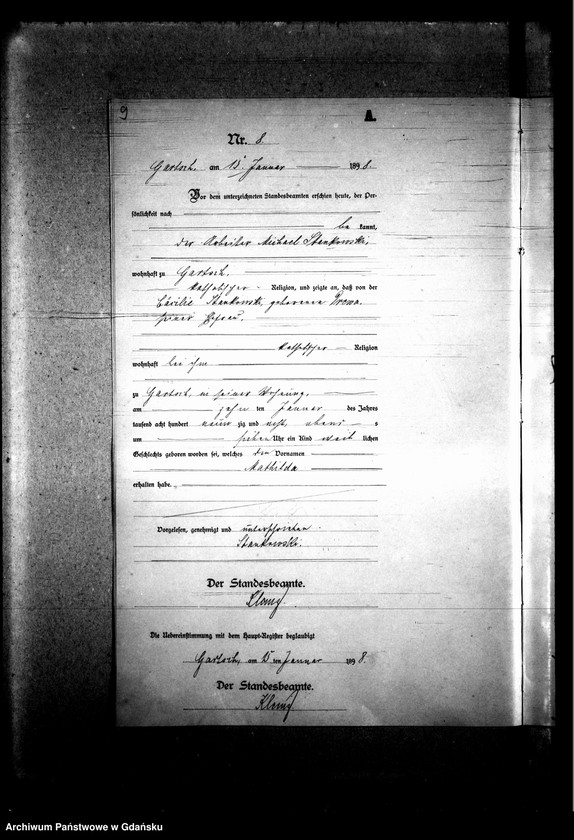 9
A.
Nr. 8.
Gartsch, am 15 Januar 1898.
Vor dem unterzeichneten Standesbeamten erschien heute, der Per-
sönlichkeit nach
be kannt,
der Arbeiter Michael Stankowski,
wohnhaft zu Gartsch,
katholischer Religion, und zeigte an, daß von der
Cäcilie Stankowski, geborenen
seiner Ehefrau,
katholischer Religion
wohnhaft bei ihm
zu Gartsch in seiner Wohnung,
am zehn ten Januar des Jahres
tausend acht hundert neun zig und acht, abends
um sieben Uhr ein Kind weib lichen
Geschlechts geboren worden sei, welches den Vornamen
Mathilda
erhalten habe.
Vorgelesen, genehmigt und unterschrieben
Stankowski.
Der Standesbeamte.
Die Uebereinstimmung mit dem Haupt-Register beglaubigt
Gartsch, am 15 ten Januar 1898.
Der Standesbeamte.
Archiwum Państwowe w Gdańsku